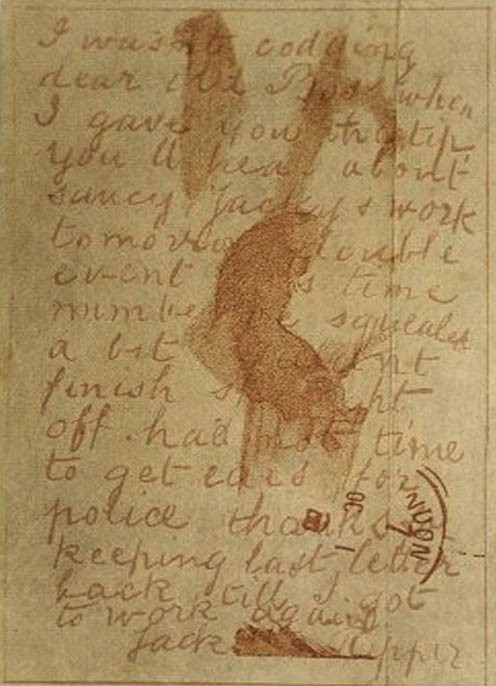 I wasnt codding
dear old Boss when
I gave you the tip
you ll hear about
saucy Jackys work
tomorrow double
event time
number one squealed
a bit couldnt
finish
off. had not time
to get ears for
police thanks
keeping last letter
back till I got
to work again.
Jack Ripper
OC 1